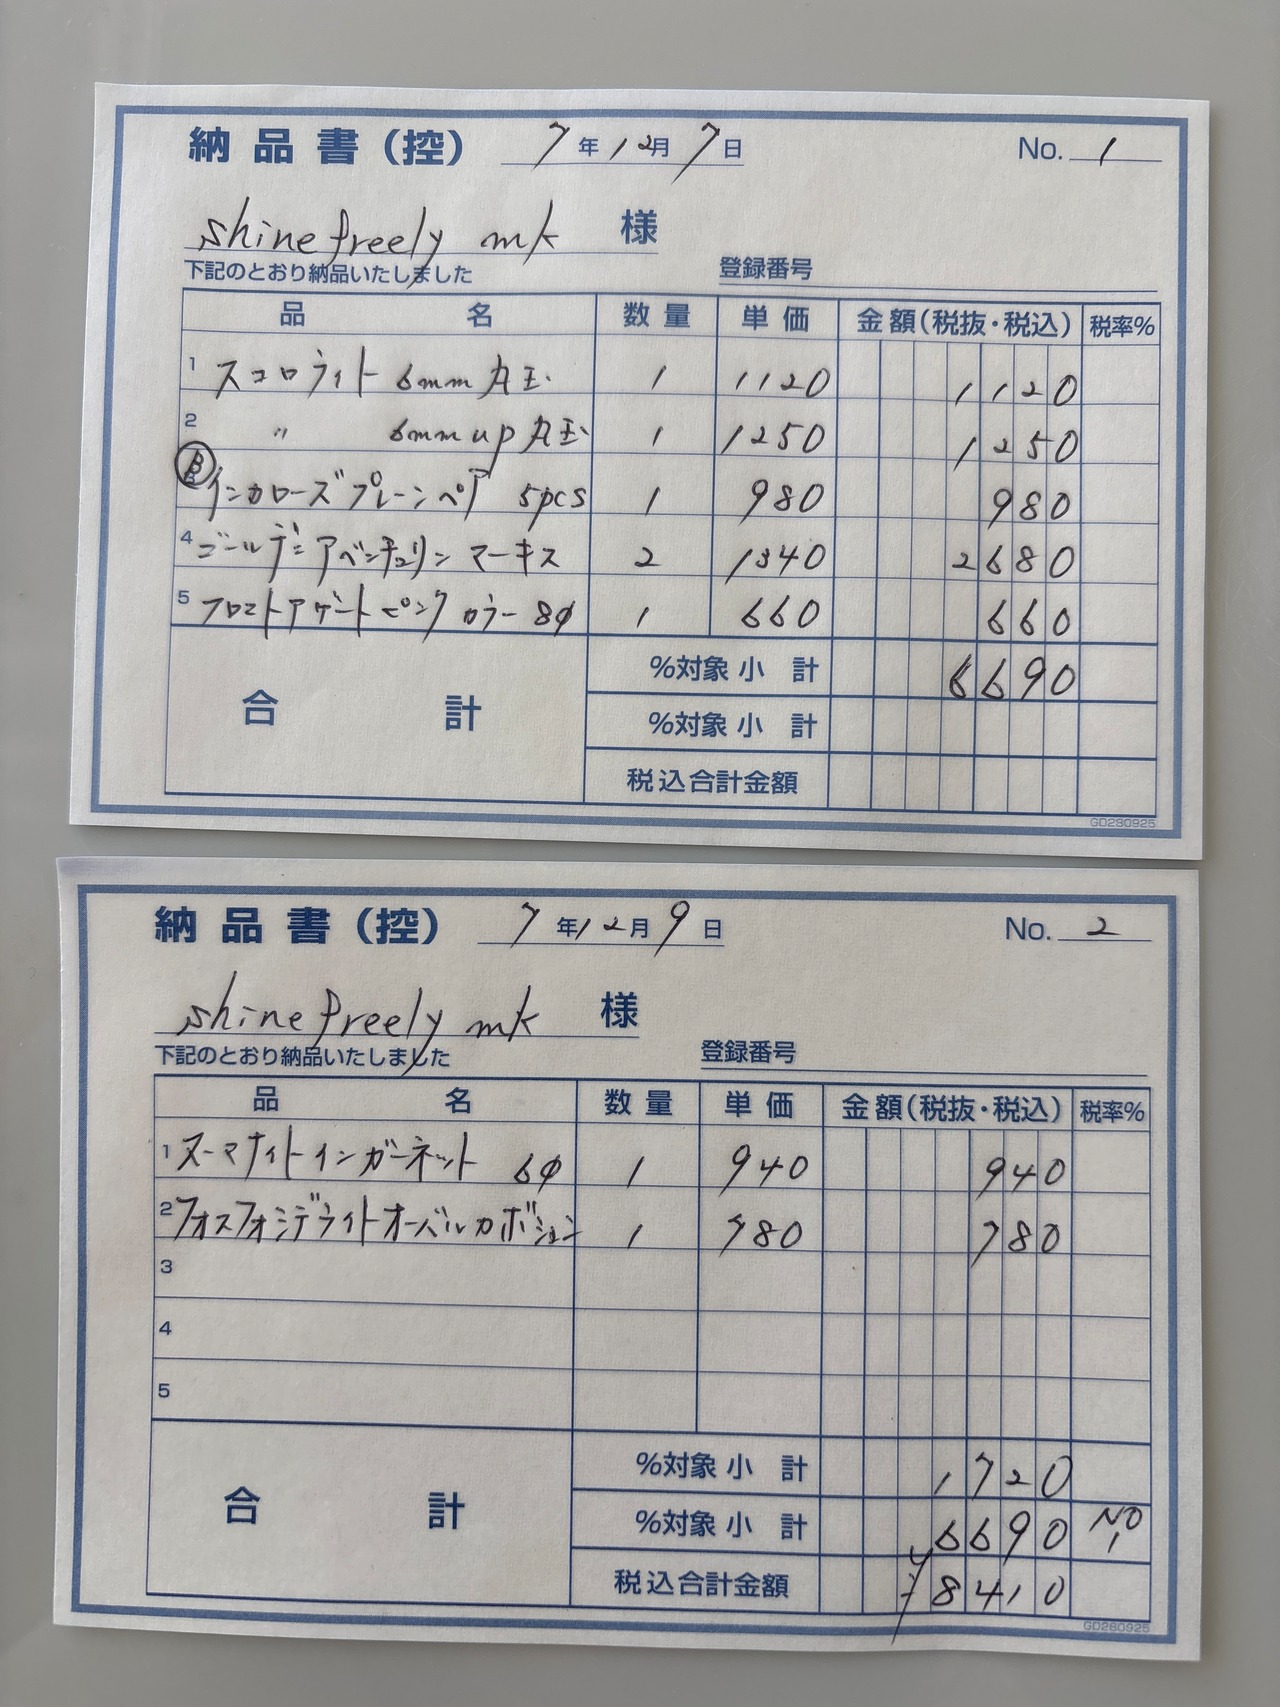 納品書(控) 7年12月7日 No. 1
shine freely mk 様
下記のとおり納品いたしました 登録番号
品名 数量 単価 金額(税抜・税込) 税率%
1 スコロライト 6mm 丸玉 1 1120 1120
2 〃 6mm up 丸玉 1 1250 1250
3 インカローズ プレーンペア 5pcs 1 980 980
4 ゴールデンアベンチュリン マーキス 2 1340 2680
5 フロストアゲートピンクカラー 8φ 1 660 660
%対象 小計 6690
合計
%対象 小計
税込合計金額
GD280925
納品書(控) 7年12月9日 No. 2
shine freely mk 様
下記のとおり納品いたしました 登録番号
品名 数量 単価 金額(税抜・税込) 税率%
1 ヌーマナイトインガーネット 6φ 1 940 940
2 フォスフォシデライトオーバルカボション 1 780 780
3
4
5
%対象 小計 1720
合計
%対象 小計 6690 NO 1
税込合計金額 ¥8410
GD280925